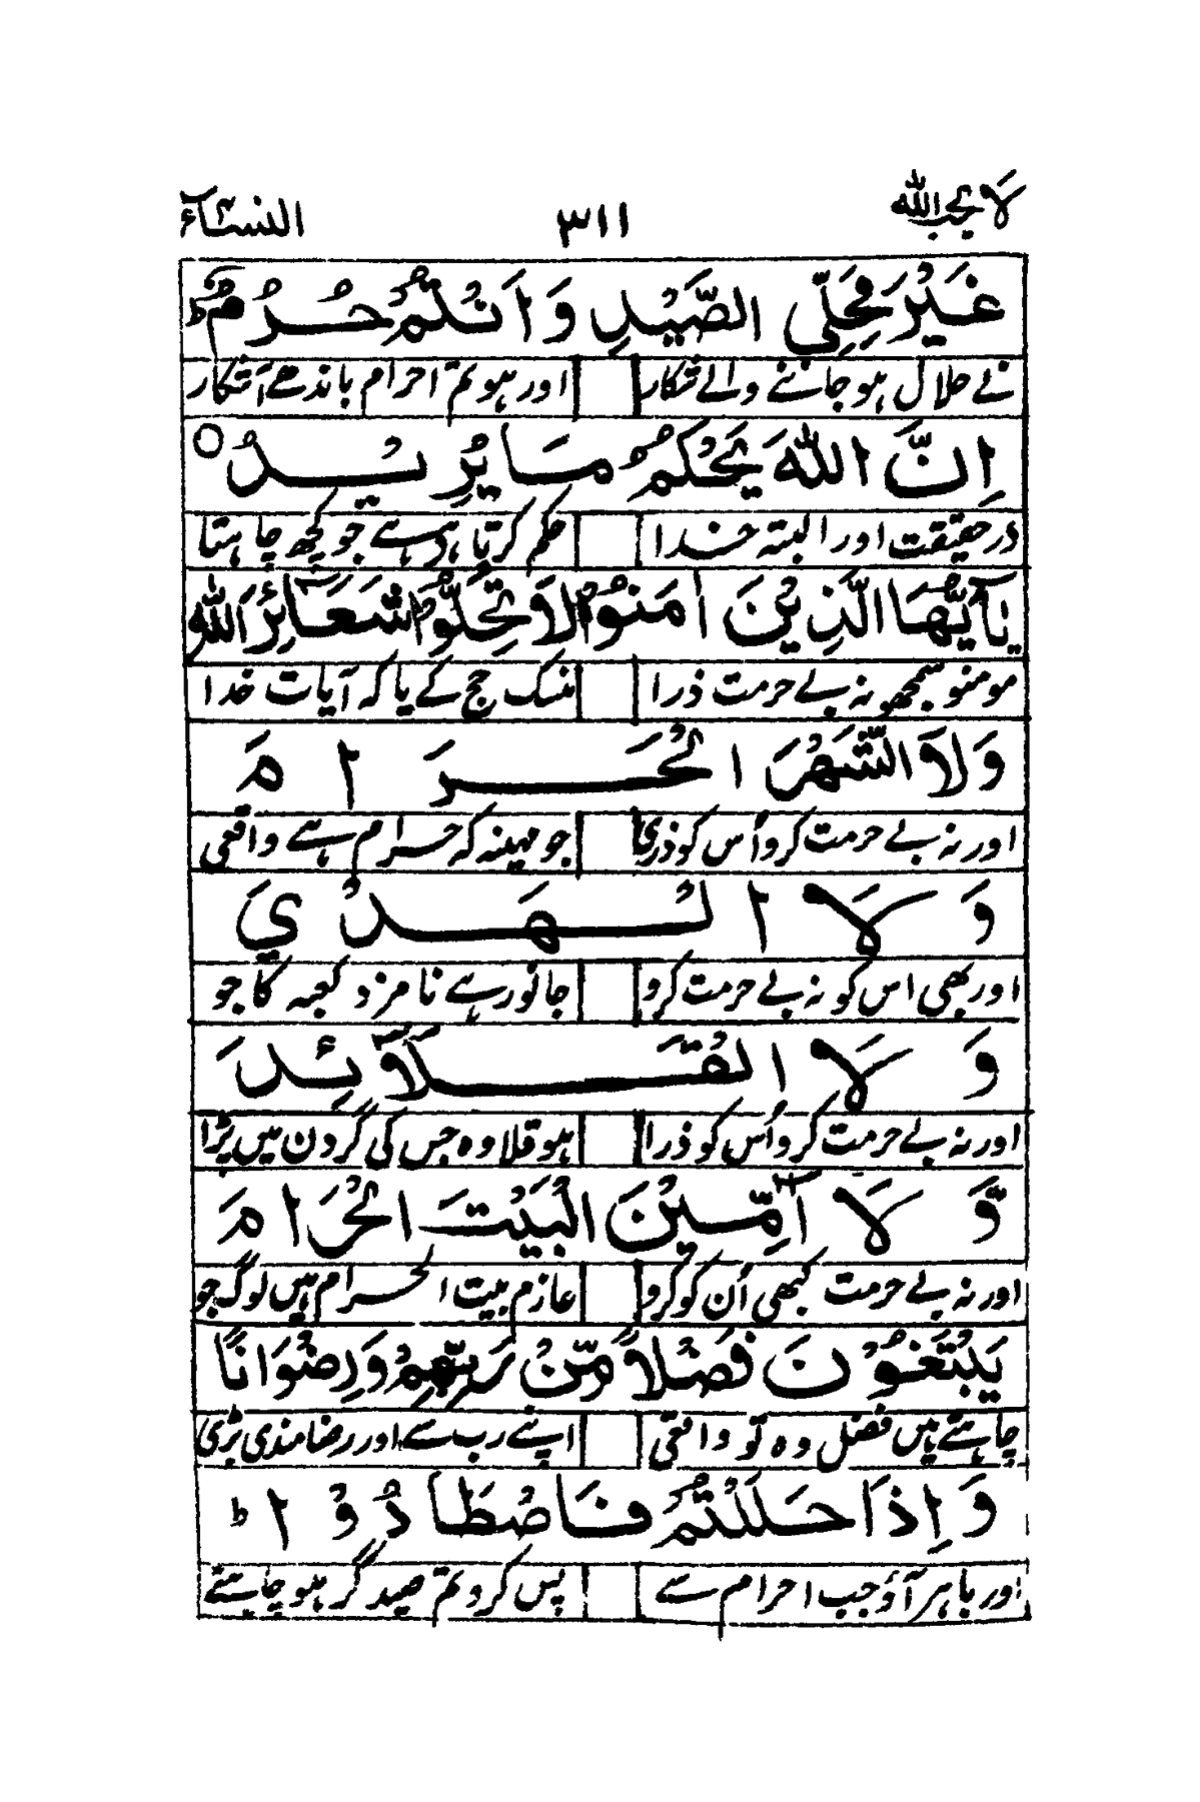 لا يحب الله ٣١١ النسآء
غَيْرَ مُحِلِّي الصَّيْدِ وَاَنْتُمْ حُرُمٌ ؕ
نے حلال ہو جاننے والے شکار اور ہو تم احرام باندھے آشکار
اِنَّ اللّٰهَ يَحْكُمُ مَا يُرِيْدُ ○
درحقیقت اور البتہ خدا حکم کرتا ہے جو کچھ چاہتا
يٰۤاَيُّهَا الَّذِيْنَ اٰمَنُوْا لَا تُحِلُّوْا شَعَآئِرَ اللّٰهِ
مومنو سمجھو نہ بے حرمت ذرا منسک حج کے یا کہ آیات خدا
وَلَا الشَّهْرَ الْحَرَامَ
اور نہ بے حرمت کرو اُس کو ذری جو مہینہ کہ حرام ہے واقعی
وَلَا الْهَدْيَ
اور بھی اس کو نہ بے حرمت کرو جانور ہے نامزد کعبہ کا جو
وَلَا الْقَلَآئِدَ
اور نہ بے حرمت کرو اُس کو ذرا ہو قلاوہ جس کی گردن میں پڑا
وَّلَآ آمِّيْنَ الْبَيْتَ الْحَرَامَ
اور نہ بے حرمت کبھی اُن کو کرو عازم بیت الحرام ہیں لوگ جو
يَبْتَغُوْنَ فَضْلًا مِّنْ رَّبِّهِمْ وَرِضْوَانًا
چاہتے ہیں فضل وہ تو واقعی اپنے رب سے اور رضامندی بڑی
وَاِذَا حَلَلْتُمْ فَاصْطَادُوْا ؕ
اور باہر آؤ جب احرام سے پس کرو تم صید گر ہو چاہتے